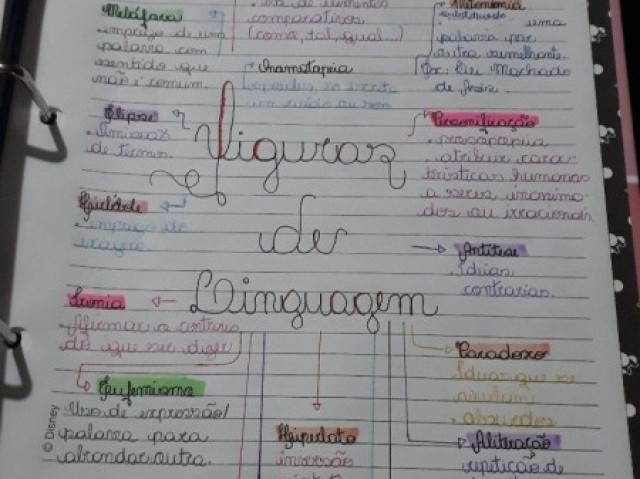 Metáfora
emprego de uma
palavra com
sentido que
não é comum.
uso de elementos
comparativos
(como, tal, qual...)
Metonimia
substituindo uma
palavra por
outra semelhante.
Ex: Leu Machado
de Assis.
Onamotapeia
um ruído ou som
Elipse
omissão
de termos.
Personificação
prosopopeia
atribuir carac
terísticas humanas
a seres inanima
dos ou irracionais
Figuras
de
Linguagem
Hipérbole
exagero
Antitese
Ideias
contrarias.
Ironia
Afirmar o contrário
do que se diger
Paradoxo
Ideias que se
anulam
absurdos
Eufemismo
Uso de expressão/
palavra para
abrandar outra.
Hipérbato
inversão
Aliteração
repetição de
© Disney